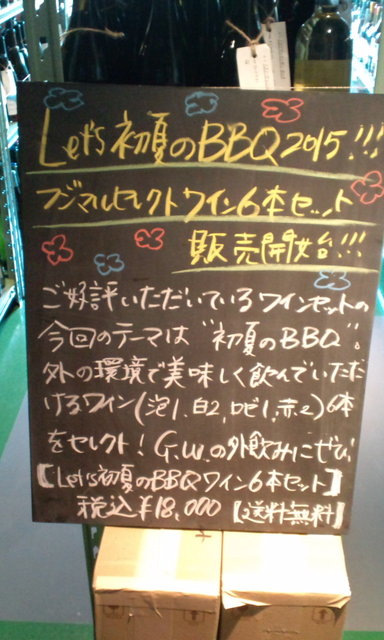 Let's 初夏のBBQ 2015!!!
フジマルセレクトワイン6本セット
販売開始!!!
ご好評いただいているワインセットの
今回のテーマは"初夏のBBQ"。
外の環境で美味しく飲んでいただ
けるワイン(泡1、白2、ロゼ1、赤2)6本
をセレクト! G.W.の外飲みにぜひ!
【Let's初夏のBBQワイン6本セット】
税込¥18,000【送料無料】